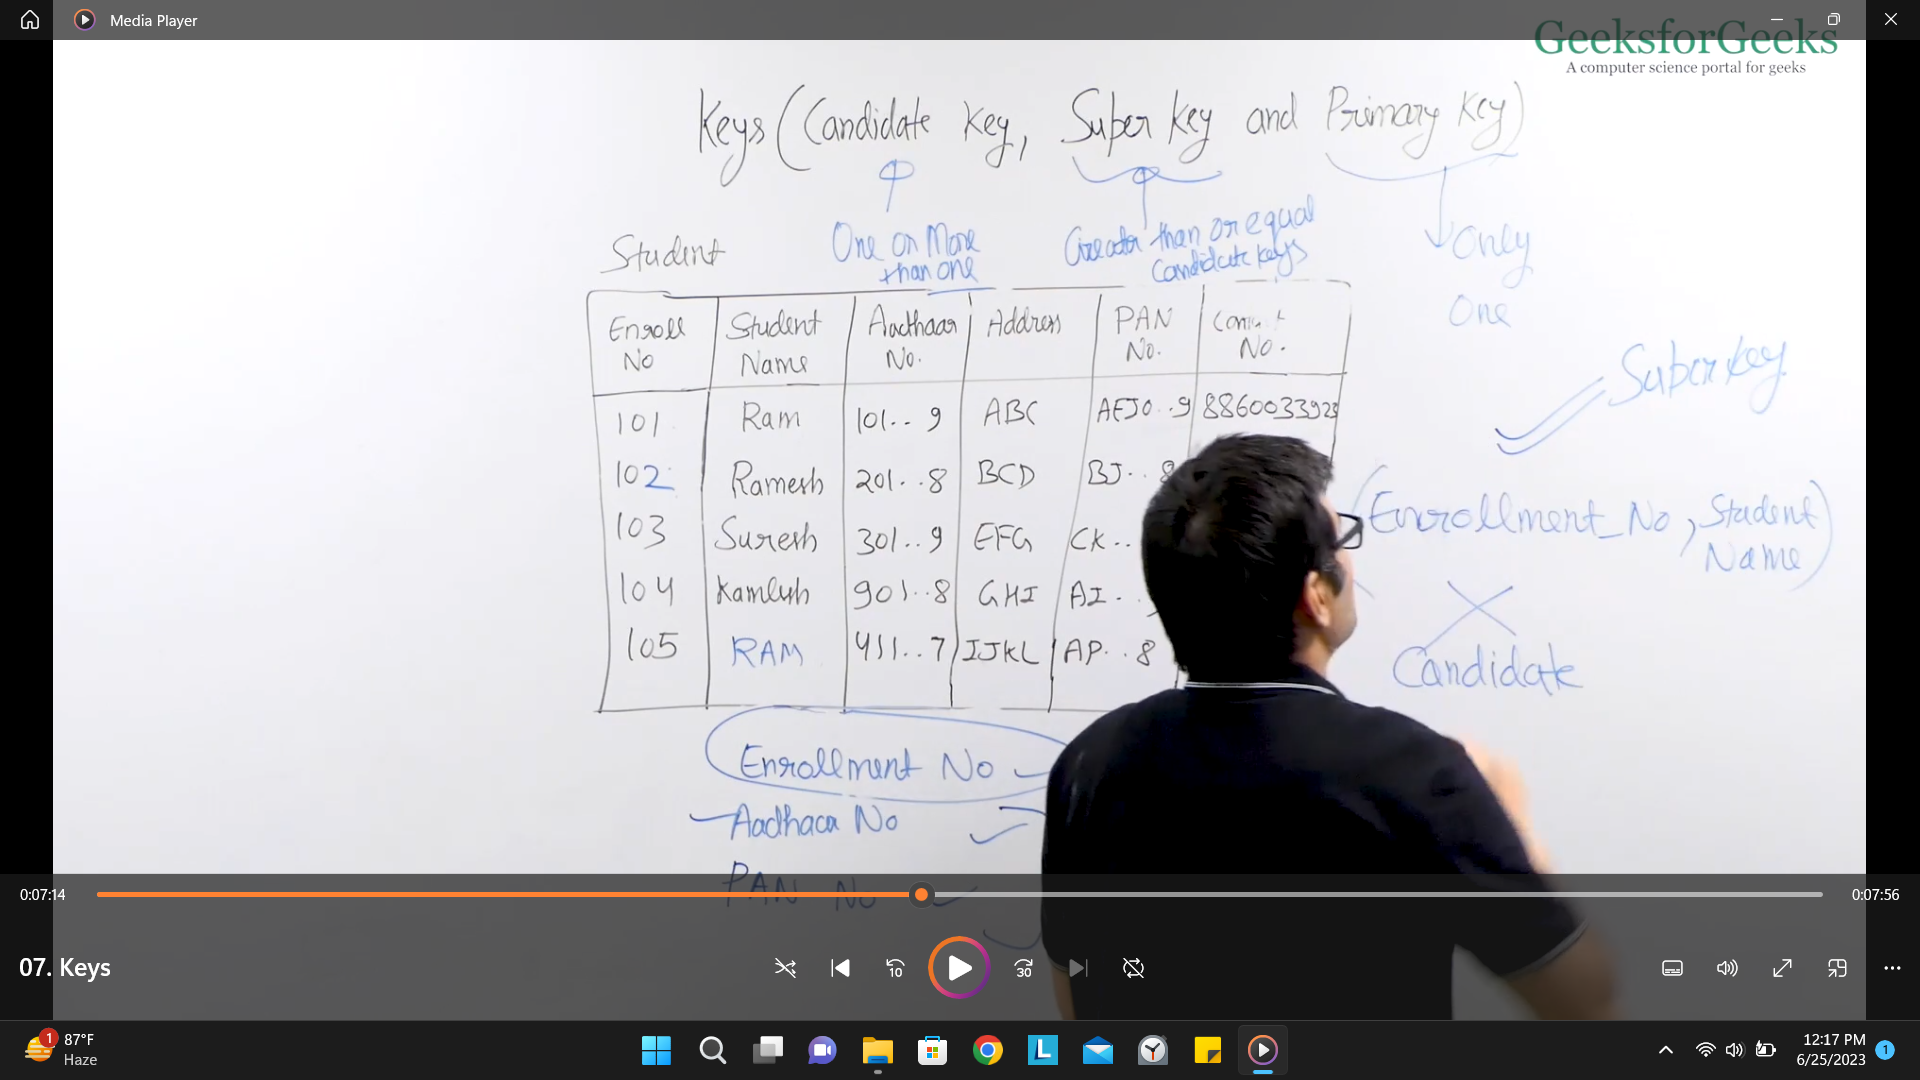 Media Player
GeeksforGeeks
A computer science portal for geeks
Keys (Candidate Key, Super Key and Primary Key)
One or More
than one
Greater than or equal
Candidate keys
Only
One
Student
Enroll No | Student Name | Aadhaar No. | Address | PAN No. | No.
101 Ram 101.. 9 ABC AEJO..9 8860033923
102 Ramesh 201..8 BCD BJ.. 8
103 Suresh 301..9 EFG CK..
104 Kamlesh 901..8 GHI AI..
105 RAM 411..7 IJKL AP..8
Super Key
(Enrollment_No, Student
Name)
Candidate
Enrollment No
Aadhaar No
PAN No
0:07:14
0:07:56
07. Keys
10
30
1
87°F
Haze
L
12:17 PM
6/25/2023
1